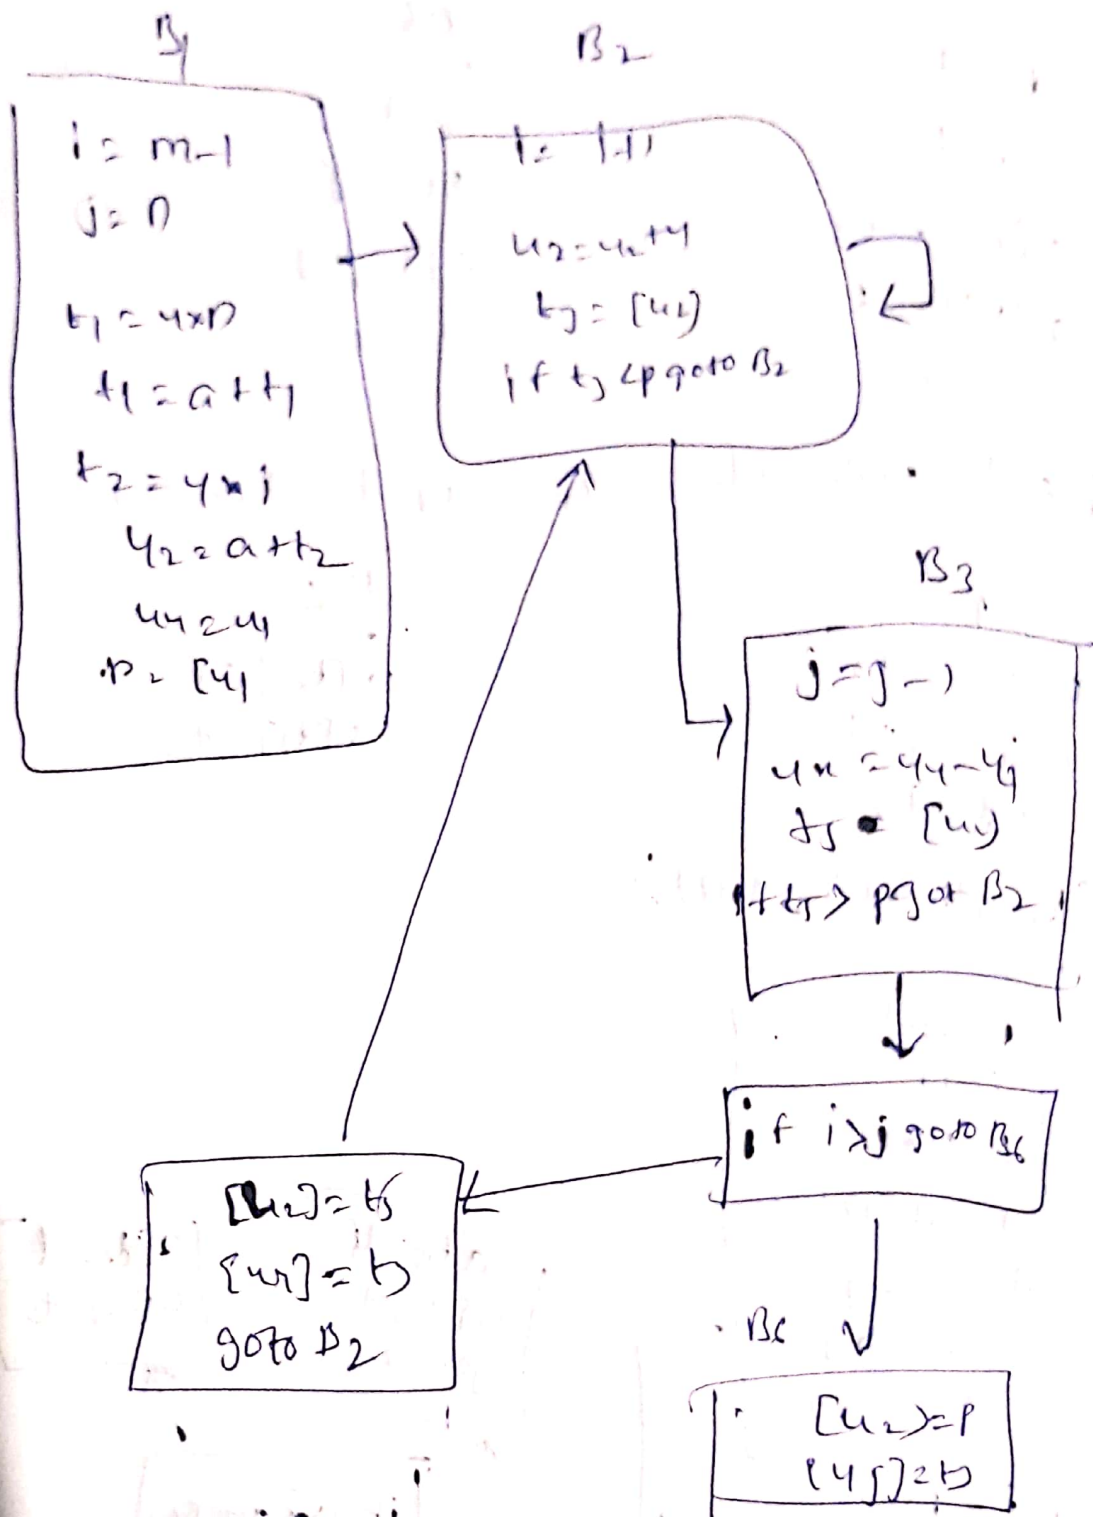 B1
i = m-1
j = n
t1 = 4xn
t1 = a+t1
t2 = 4xi
u2 = a+t2
u4 = u1
p = [u1
B2
i = i+1
u2 = u2+4
t3 = [u2]
if t3 <p goto B2
B3
j = j-1
= u4-4
t5 = [u4]
if t5> p got B2
if i>j goto B6
[u2] = t5
[u4] = t3
goto B2
B6
[u2] = p
[u5] = t3